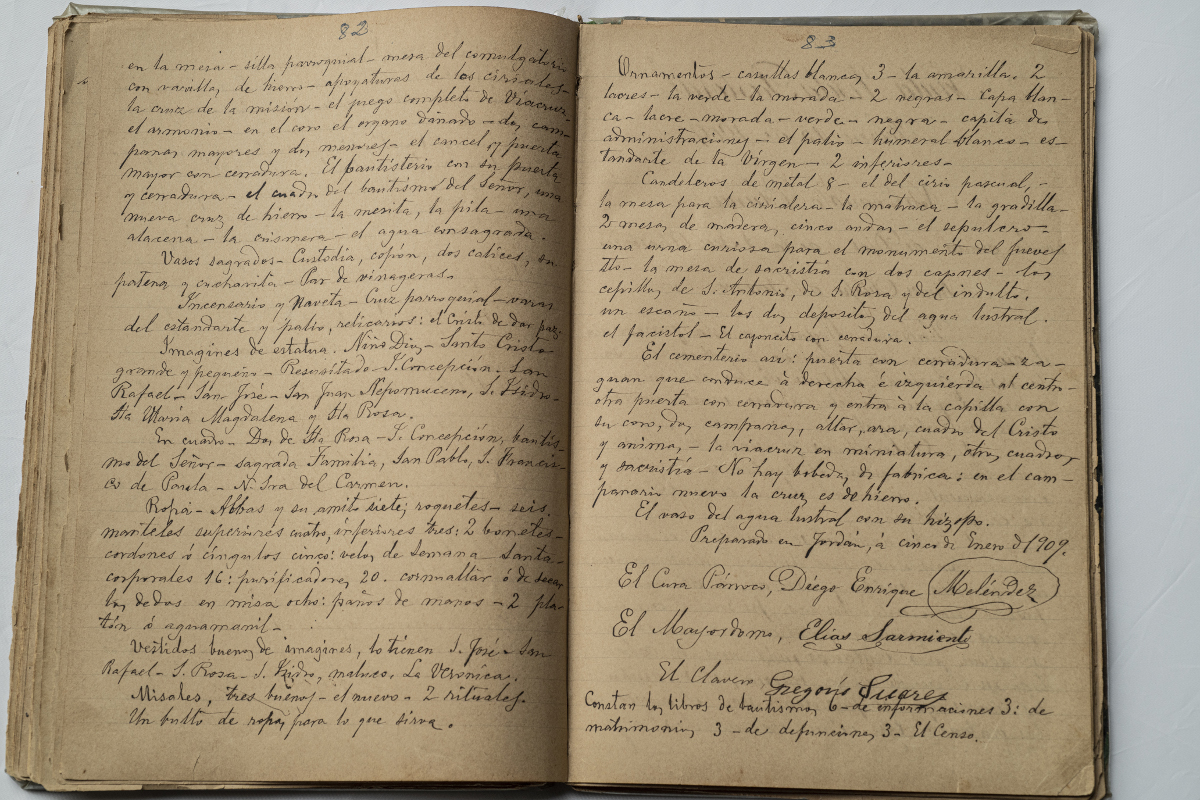 82
en la mesa - silla parroquial - mesa del comulgatorio
con varillas de hierro - apoyaturas de los ciriales -
la cruz de la mision - el juego completo de Viacruz -
el armonio - en el coro el organo dañado - dos cam-
panas mayores y dos menores - el cancel y puerta
mayor con cerradura. El bautisterio con su puerta
y cerradura - el cuadro del bautismo del Señor, una
nueva cruz de hierro - la mesita, la pila - una
alacena - la crismera - el agua consagrada.
Vasos sagrados - Custodia, copón, dos calices, su
patena y cucharita - Par de vinageras -
Incensario y Naveta - Cruz parroquial - varas
del estandarte y palio, relicarios: el Cristo de dar paz.
Imagines de estatua. Niño Dios - Santo Cristo
grande y pequeño - Resusitado - I. Concepción. San
Rafael - San José - San Juan Nepomuceno, S. Isidro -
Sta Maria Magdalena y Sta Rosa.
En cuadro - Dos de Sta Rosa - I. Concepción, bautis-
mo del Señor - sagrada Familia, San Pablo, S. Francis-
co de Paula - N. Sra del Carmen.
Ropa - Albas y su amito siete, roquetes - seis.
manteles superiores cuatro, inferiores tres: 2 bonetes -
cordones ó cíngulos cinco: velos de Semana Santa -
corporales 16: purificadores 20. cornualtar ó de secar
los dedos en misa ocho: paños de manos - 2 pla-
tón ó aguamanil -
Vestidos buenos de imagines, lo tienen S. José - San
Rafael - S. Rosa - S. Isidro, maluco, La Verónica.
Misales, tres buenos - el nuevo - 2 rituales.
Un bulto de ropas para lo que sirva.
83
Ornamentos - casullas blancas 3 - la amarilla. 2
lacres - la verde - la morada - 2 negras - capa blan-
ca - lacre - morada - verde - negra - capita de
administraciones - el palio - humeral blanco - es-
tandarte de la Virgen - 2 inferiores -
Candeleros de metal 8 - el del cirio pascual, -
la mesa para la cirialera - la matraca - la gradilla -
2 mesas de madera, cinco andas - el sepulcro -
una urna curiosa para el monumento del jueves
Sto - la mesa de sacristia con dos cajones - los
cepillos de S. Antonio, de S. Rosa y del indulto.
un escaño - los dos depositos del agua lustral.
el facistol - El cajoncito con cerradura.
El cementerio asi: puerta con cerradura - za-
guan que conduce à derecha é izquierda al centro -
otra puerta con cerradura y entra à la capilla con
su coro, dos campanas, altar, ara, cuadro del Cristo
y animas - la viacruz en miniatura, otros cuadros
y sacristía - No hay bobedas de fabrica: en el cam-
panario nuevo la cruz es de hierro.
El vaso del agua lustral con su hizopo.
Preparado en Jordán, à cinco de Enero d 1909.
El Cura Párroco, Diego Enrique Meléndez
El Mayordomo, Elias Sarmiento
El Clavero Gregorio Suarez
Constan los libros de bautismos 6 - de informaciones 3: de
matrimonios 3 - de defunciones 3 - El Censo.